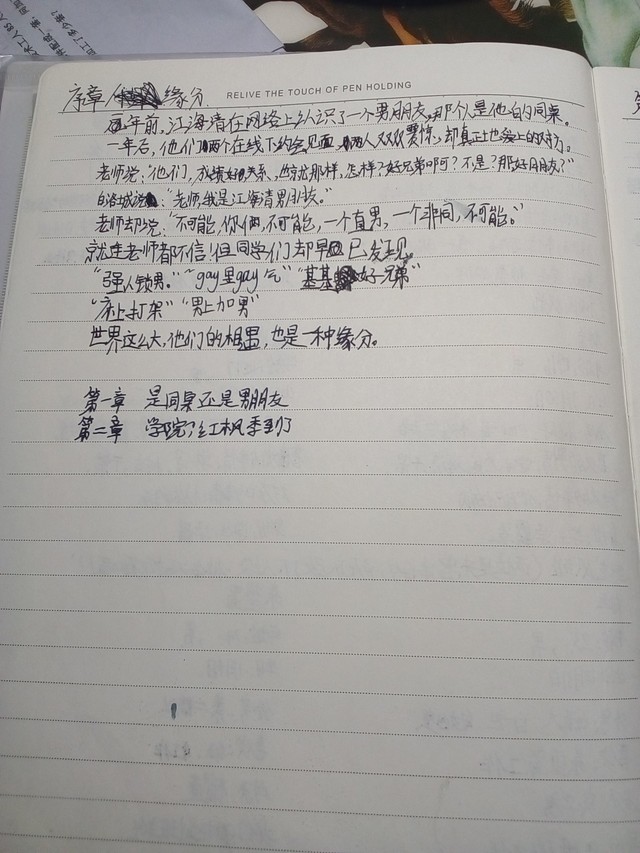 序章 缘分
RELIVE THE TOUCH OF PEN HOLDING
五年前,江海清在网络上认识了一个男朋友,那个人是他的同桌。
一年后,他们两个在线下约会见面,两人双双震惊,却真正也爱上的对方。
老师说:他们,关系,也就那样,怎样?好兄弟啊可?不是?那好朋友?"
白洛城说:"老师,我是江海清男朋友。"
老师却说:"不可能,你俩,不可能,一个直男,一个非同,不可能。"
就连老师都不信!但同学们却早已发现
"强人锁男。" "gay里gay气" "基基好兄弟"
"床上打架" "男上加男"
世界这么大,他们的相遇,也是一种缘分。
第一章 是同桌还是男朋友
第二章 学院红枫季到了